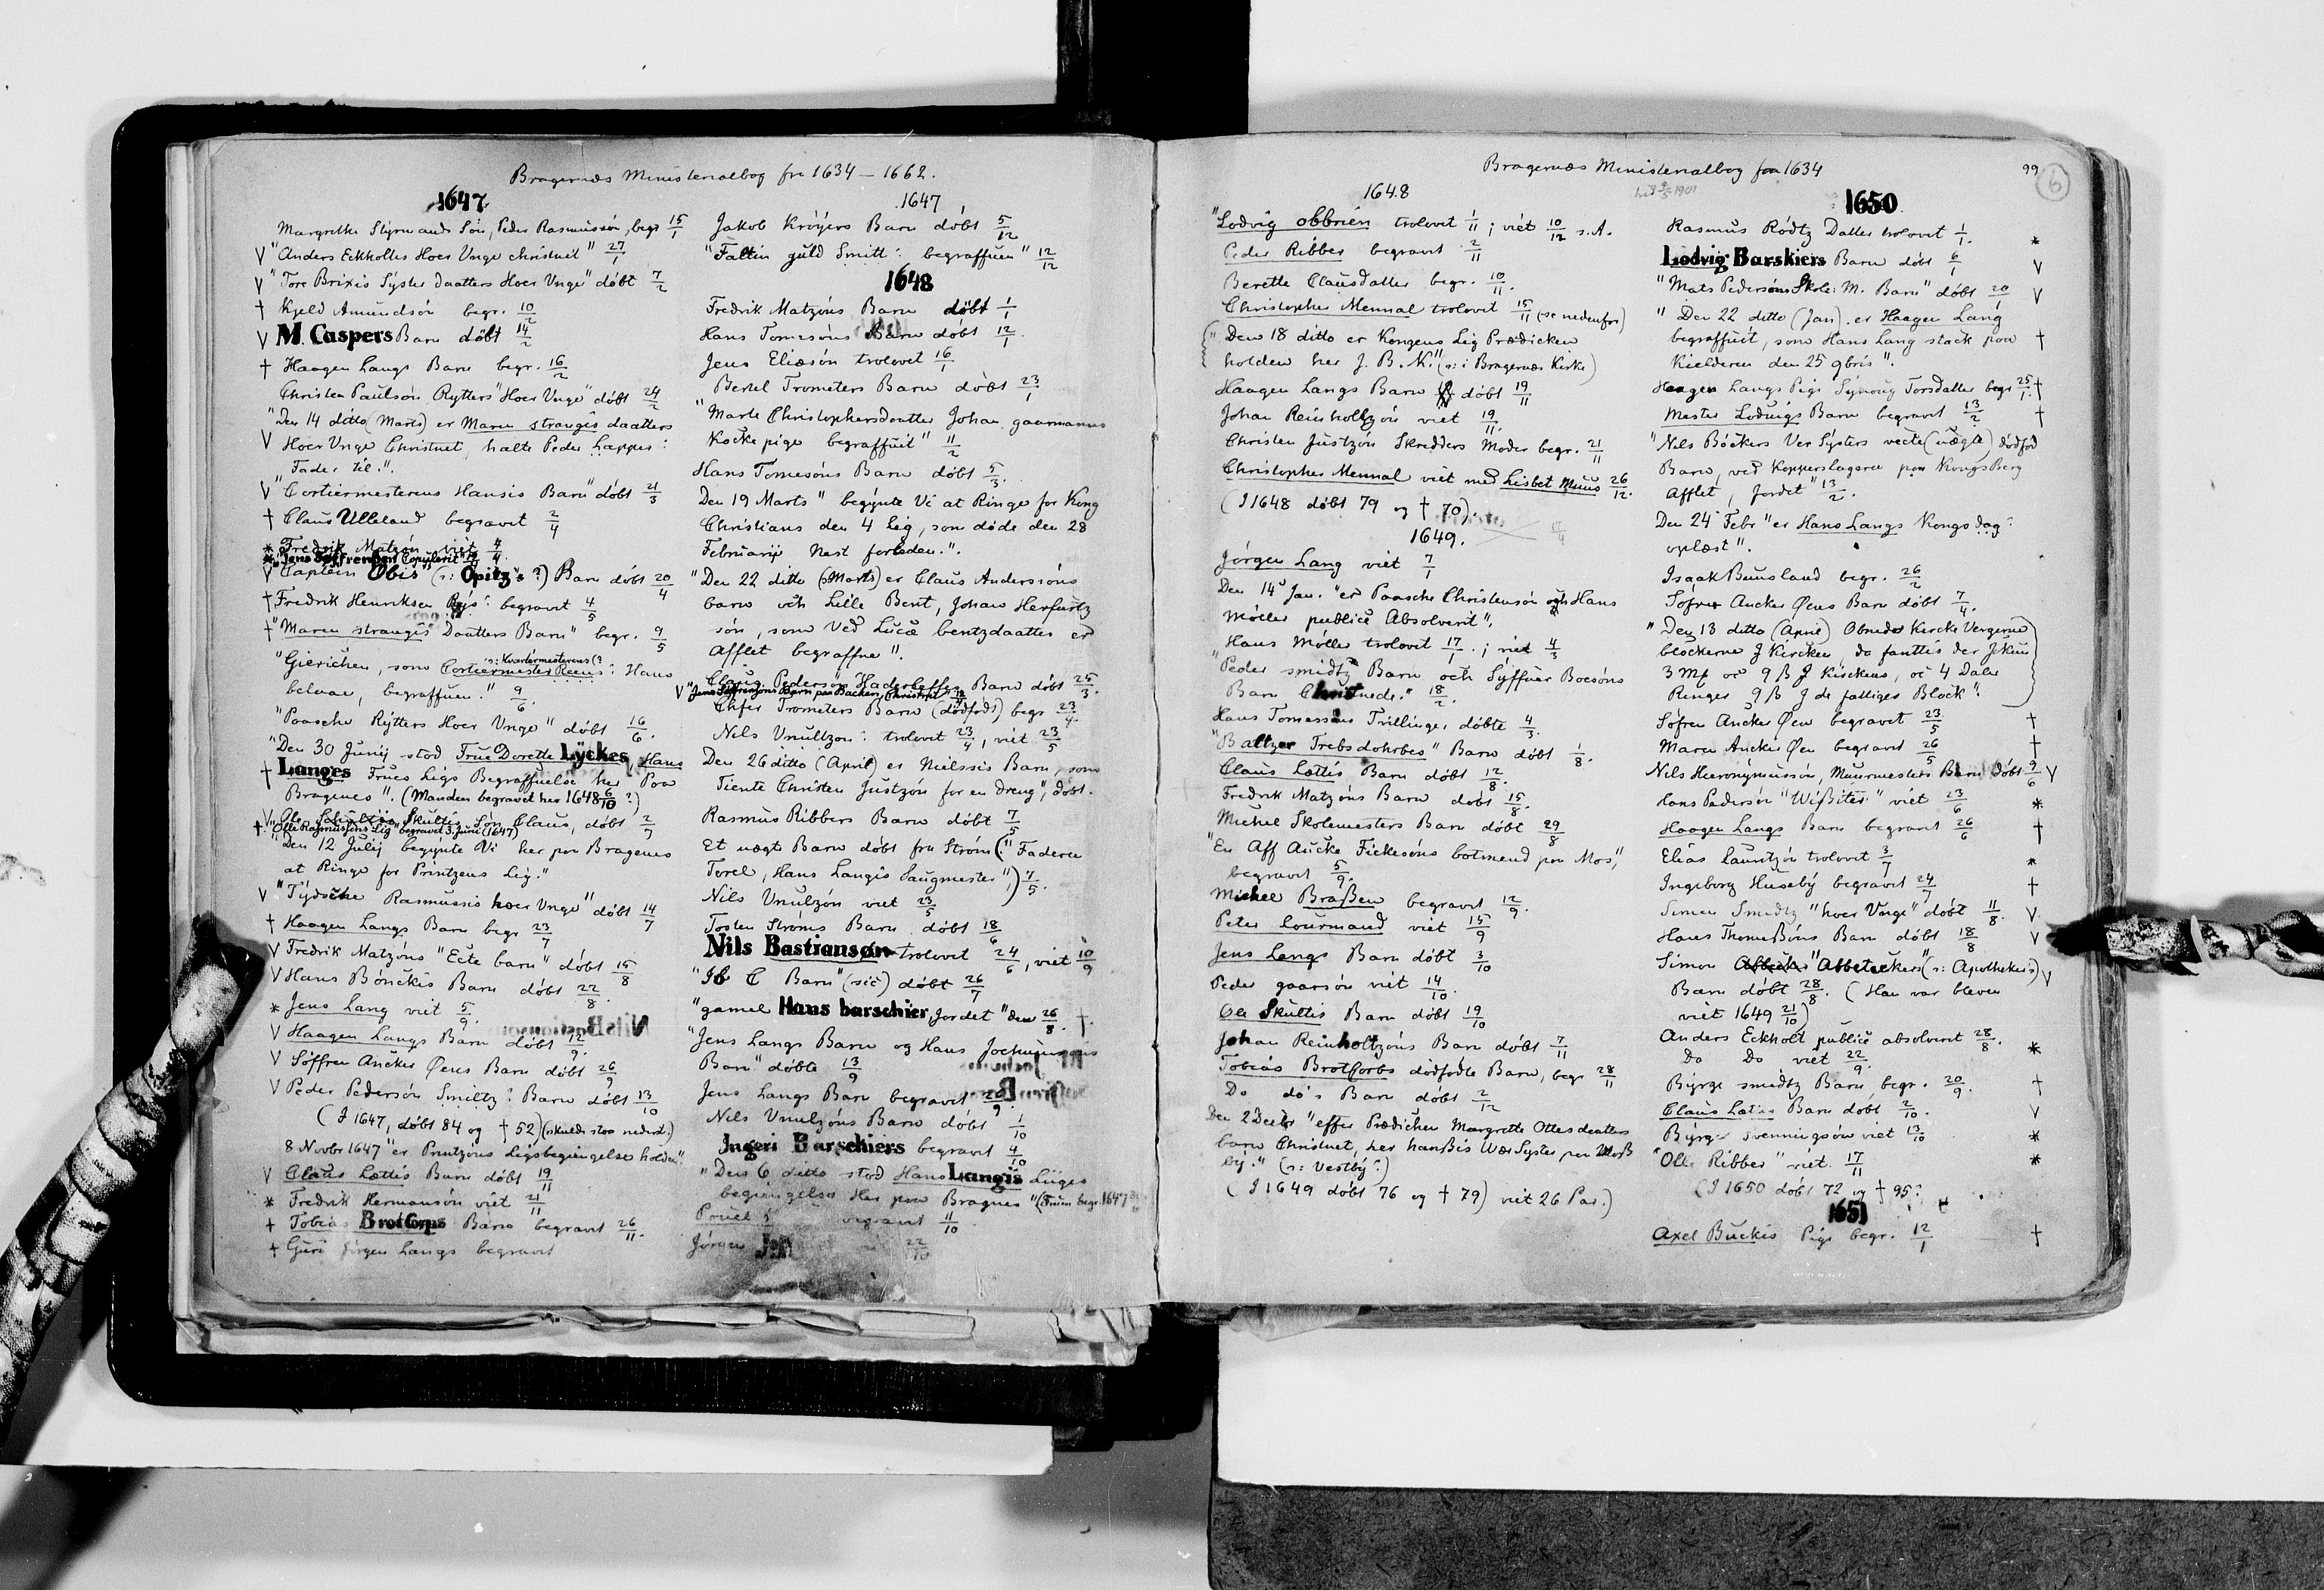 Bragernæs Ministerialbog fra 1634 — 1662.
1647
Margrethe Styrmands Søn, Peder Rasmussøn, begr 15/1
V "Anders Eckholles Hoer Unge christnit" 27/1
V "Tore Brixis Syster daatters Hoer Unge" døbt 7/2
† Kjeld Amundsøn begr. 10/2
V M. Caspers Barn døbt 14/2
† Haagen Langs Barn begr. 16/2
Christen Paulsøn Rytters "Hoer Unge" døbt 24/2
"Den 14 ditto (Marts) er Maren strangis daatters
V Hoer Unge Christnet, halte Peder Lapper:
Fader til.".
V "Cortiermesterens Hansis Barn" døbt 21/3
† Claus Ulleland begravet 2/4
* Fredrik Matzøn viet 4/4
* "Jens Søffrensen Copulerit"
V "Captein Obis" (ɔ: Opitz's ?) Barn døbt 20/4
† Fredrik Henriksen begravit 4/5
† "Maren strangis Daatters Barn" begr. 9/5
ɔ: Kvartermesterens (?
"Gierichen, som Cortiermester Reens: Hans
belvae, begraffuen." 9/6.
"Paasche Rytters Hoer Unge" døbt 16/6.
"Den 30 Junij stod Frue Dorette Lyckes, Hans
† Langes Frues Ligs Begraffuelse her Paa
Bragenes". (Manden begravet her 1648 6/10 ?)
V Ole Skultis Søn Claus, døbt 2/7
† "Olle Rasmussens Lig" begravet 3. Juni (1647)
"Den 12 Julij begynte Vi her paa Bragenes
at Ringe for Printzens Lig."
V "Tydsche Rasmussis hoer Unge" døbt 14/7
† Haagen Langs Barn begr 23/7
V Fredrik Matzøns "Ecte barn" døbt 15/8
V Hans Bönckis Barn døbt 22/8.
* Jens Lang viet 5/9.
V Haagen Langs Barn døbt 12/9.
V Søffren Ancker Øens Barn døbt 26/9
V Peder Pedersøn Smiltz: Barn døbt 13/10
(I 1647, døbt 84 og † 52) (skulde staa nederst)
8 Novbr 1647 "er Printzens Ligsbegiengelse holden".
V Claus Lættis Barn døbt 19/11
* Fredrik Hermansøn viet 21/11
† Tobias Brotkorps Barn begravet 26/11.
† Guri Jørgen Langs begravit
1647
Jakob Krøyers Barn døbt 5/12
"Faltin guld Smitt: begraffuen" 12/12
1648
Fredrik Matzøns Barn døbt 1/1
Hans Tomesøns Barn døbt 12/1.
Jens Eliæsøn trolovet 16/1
Bertel Trometers Barn døbt 23/1
"Marte Christophersdaatter Johan gaarmanns
Kocke pige begraffuit" 11/2
Hans Tomesøns Barn døbt 5/3.
Den 19 Marts "begynte Vi at Ringe for Kong
Christians den 4 Lig, som døde den 28
Februarij Nest forleden.".
"Den 22 ditto (Marts) er Claus Anderssøns
barn och Lille Bent, Johan Herfurtz
søn, som Ved Lucæ bentzdaatter er
Afflet begraffne".
Claus Pedersøn Haderleffs Barn døbt 25/3.
V "Jens Søffrenzøns Barn paa Backen, Christnit"
Trometers Barn (dødfødt) begr 23/4.
Nils Vnultzøn: trolovit 23/4, viet 23/5
Den 26 ditto (April) er Nielssis Barn, som
Tiente Christen Justzøn for en Dreng", døbt.
Rasmus Ribbers Barn døbt 7/5
Et uægte Barn døbt fra Strøm ("Faderen
Torel, Hans Langis Saugmester") 7/5.
Nils Vnulzøn viet 23/5
Tosten Strøms Barn døbt 18/6
Nils Bastiansøn trolovet 24/6, viet 10/9
"Ib C Barn" (sic) døbt 26/7
"gamel Hans barschier, Jordet" den 26/8. †.
"Jens Langs Barn og Hans Jochumsøns
Barn" døbte 13/9
Jens Langs Barn begravet 26/9.
Nils Vnulzøns Barn døbt 1/10
Ingeri Barschiers begravet 4/10
"Den 6 ditto stod Hans Langis Liiges
begiengelse Her paa Bragnes" (Fruen begr. 1647)
Pouel begravet 11/10
Jørgen 22/10
Bragernæs Ministerialbog fra 1634
99
6
1648
"Lodvig obbrien trolovit 1/11; viet 10/12 s. A.
Peder Ribber begravet 2/11
Berette Clausdatter begr. 10/11.
Christopher Mennal trolovit 15/11 (se nedenfor)
("Den 18 ditto er Kongens Lig Prædicken
holden her J. B. K." (ɔ: i Bragernæs Kirke)
Haagen Langs Barn døbt 19/11
Johan Reinholtzøn viet 19/11.
Christen Justzøn Skredders Moder begr. 21/11
Christopher Mennal viet med Lisbet Muus 26/12.
(I 1648 døbt 79 og † 70).
1649.
Jørgen Lang viet 7/1
Den 14 Jan. "er Paasche Christensøn och Hans
Møller publicè Absolverit".
Hans Møller trolovit 17/1; viet 4/3
"Peder smidtz Barn och Syffuer Boesøns
Barn Christnede." 18/2.
Hans Tomassøns Trillinger døbte 4/3.
"Baltzer Trebsdohrbes" Barn døbt 1/8.
Claus Lættis Barn døbt 12/8.
Fredrik Matzøns Barn døbt 15/8.
Michel Skolemesters Barn døbt 29/8
"En Aff Aucke Fickesøns botmend paa Mos",
begravet 5/9.
Michel Braßen begravet 12/9.
Peter Courmand viet 15/9
Jens Langs Barn døbt 3/10
Peder gaarsøn viet 14/10.
Ole Skultis Barn døbt 19/10
Johan Reinholtzøns Barn døbt 7/11
Tobias Brotkorbs dødfødte Barn, begr 28/11
Do do's Barn døbt 2/12
Den 2 Decbr "effter Prædichen Margrette Ottesdaatters
barn Christnet, her hanßis Wær Syster paa Moß
by." (ɔ: Vestby?)
(I 1649 døbt 76 og † 79) viet 26 Par.)
1650
Rasmus Rødtz Datter trolovit 1/1. *
Lodvig Barskiers Barn døbt 6/1 V
"Mats Pedersøns Skole: M. Barn" døbt 20/1 V
"Den 22 ditto (Jan). er Haagen Lang
begraffuit, som Hans Lang stack paa †
Kielderen den 25 9bris".
Haagen Langs Pige Synnøug Torsdatter begr 25/1. †
Mester Lodvigs Barn begravet 13/2 †
"Nils Böckers Ver Systers vecte (uægte) dødfød
Barn, ved Kopperslageren paa KongsBerg
Afflet, Jordet" 13/2.
Den 24 Febr "er Hans Langs Kongs dag:
oplæst".
Isaak Beunsland begr. 26/2
Søfren Ancker Øens Barn døbt 7/4.
"Den 13 ditto (April) Obnedes Kircke Vergerne
blockerne J Kircken, da fanttis der Jkun
3 Mk oc 9 ß J Kirckens, oc 4 Daler
Ringer 9 ß J de fattiges Block".
Søfren Ancker Øen begravet 23/5 †
Maren Ancker Øen begravet 26/5 †
Nils Hieronymussøn, Muurmesters Barn døbt 9/6 V
Hans Pedersøn "Wißiter" viet 23/6 *
Haagen Langs Barn begravet 26/6 †
Elias Lauritzøn trolovet 3/7 *
Ingeborg Huseby begravet 24/7 †
Simen Smidtz "hoer Unge" døbt 11/8. V
Hans Thomeßøns Barn døbt 18/8 V
Simon "Abbeteckers" (ɔ: Apothekers) V
Barn døbt 28/8. (Han var bleven
viet 1649 21/10)
Anders Eckholt publicè absolverit 28/8.
Do Do viet 22/9. *
Byrge smidtz Barn begr. 20/9. †
Claus Lættis Barn døbt 2/10. V
Byrge Svenningsøn viet 13/10 *
"Olle Ribber" viet. 17/11 *
(I 1650 døbt 72 og † 95?
1651
Axel Buckis Pige begr. 12/1 †